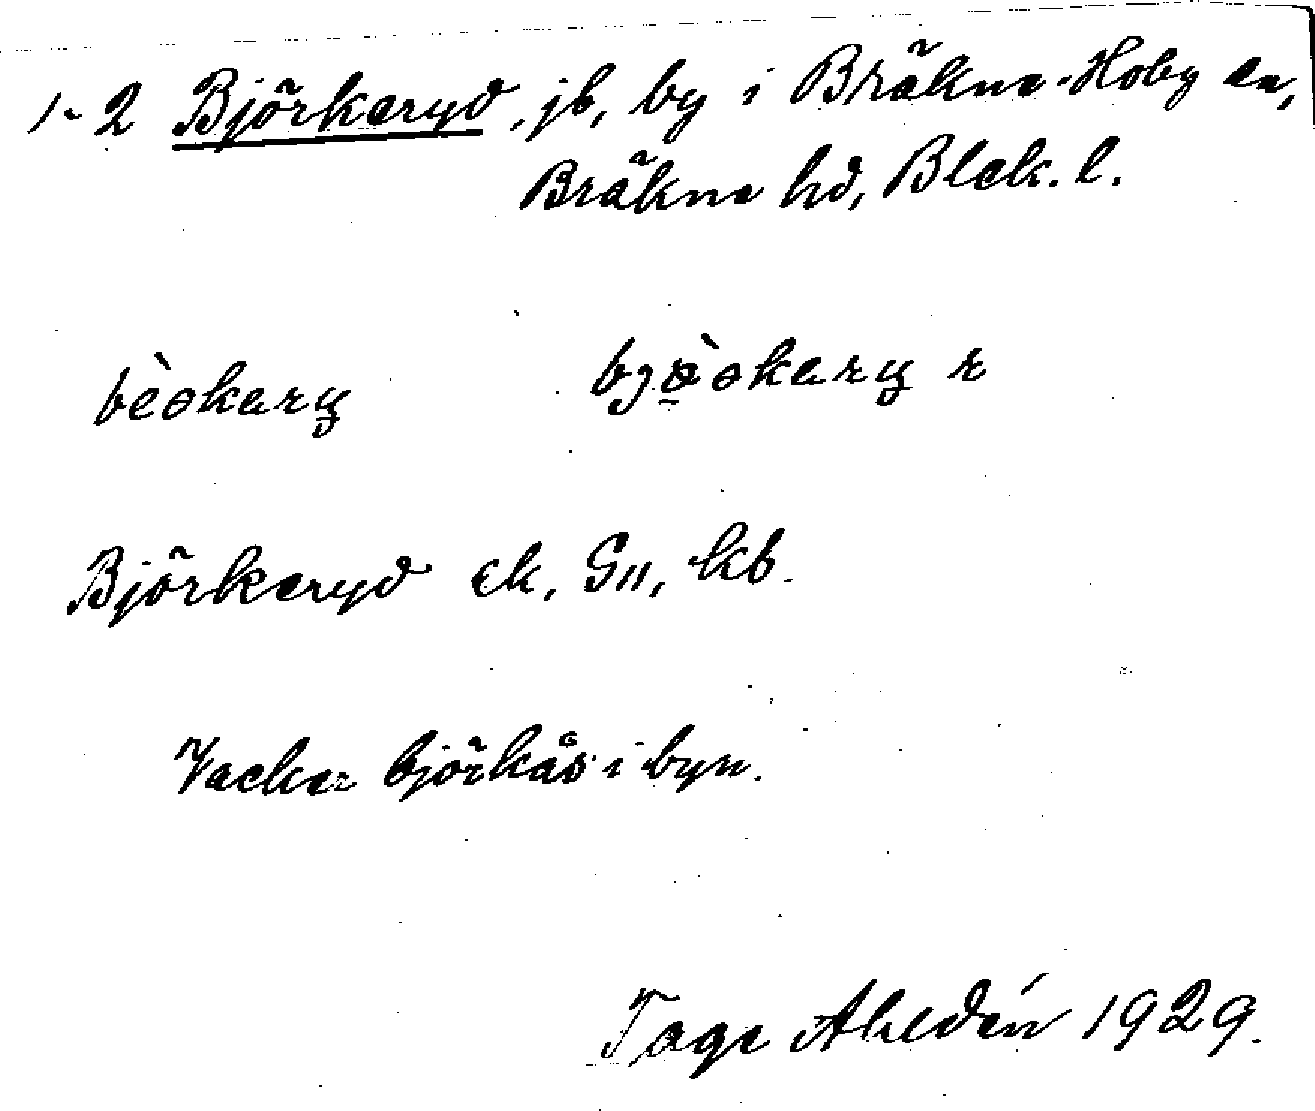 1-2 Björkeryd, jb, by i Bräkne-Hoby sn,
Bräkne hd, Blek. l.
bèokary bjöokary r
Björkeryd ek, GII, kb.
Vacker björkås i byn.
Tage Ahldén 1929.